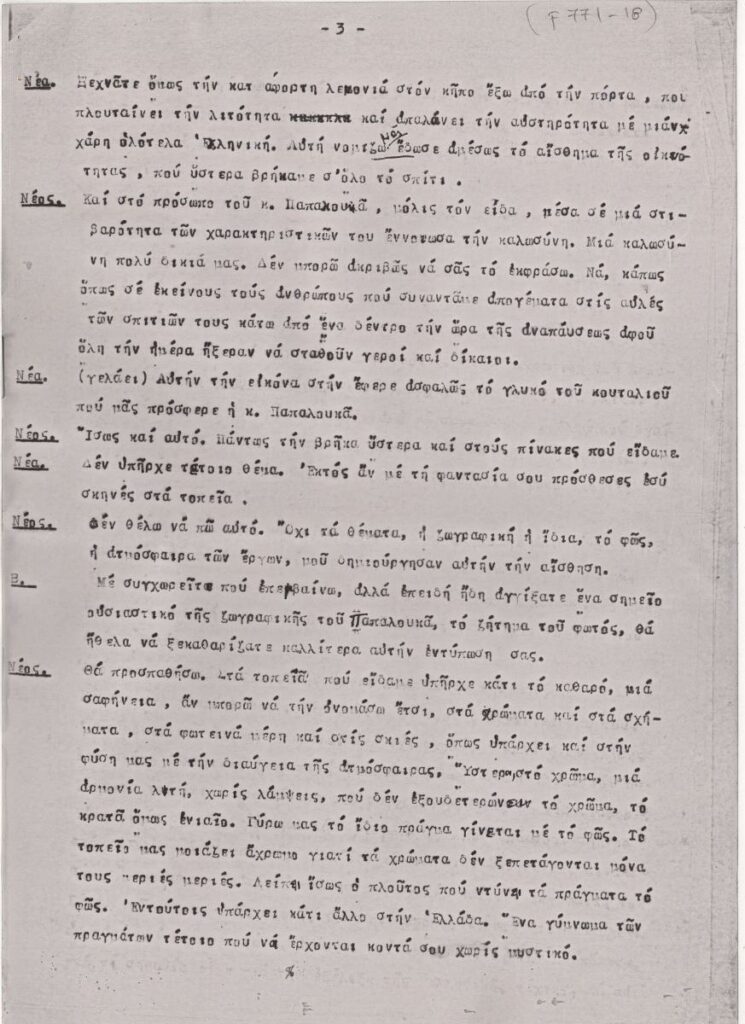 (F 771-18)
- 3 -
Νέα. Ξεχνᾶτε ὅμως τήν κατ άφορτη λεμονιά στόν κῆπο ἔξω ἀπό τήν πόρτα , πού
πλουταίνει τήν λιτότητα καί ἁπαλάνει τήν αὐστηρότητα μέ μιάν
χάρη ὁλότελα Ἑλληνική. Αὐτή νομίζω μας ἔδωσε ἀμέσως τό αἴσθημα τῆς οἰκειό
τητας , πού ὕστερα βρήκαμε σ'ὅλο τό σπίτι .
Νέος. Καί στό πρόσωπο τοῦ κ. Παπαλουκᾶ , μόλις τόν εἶδα , μέσα σέ μιά στι-
βαρότητα τῶν χαρακτηριστικῶν του ἔννοιωσα τήν καλωσύνη. Μιά καλωσύ-
νη πολύ δικιά μας. Δέν μπορῶ ἀκριβῶς νά σᾶς τό ἐκφράσω. Νά, κάπως
ὅπως σέ ἐκείνους τούς ἀνθρώπους πού συναντᾶμε ἀπογέματα στίς αὐλές
τῶν σπιτιῶν τους κάτω ἀπό ἕνα δέντρο τήν ὥρα τῆς ἀναπαύσεως ἀφοῦ
ὅλη τήν ἡμέρα ἤξεραν νά σταθοῦν γεροί καί δίκαιοι.
Νέα. (γελάει) Αὐτήν τήν εἰκόνα στήν ἔφερε ἀσφαλῶς τό γλυκό τοῦ κουταλιοῦ
πού μᾶς πρόσφερε ἡ κ. Παπαλουκᾶ.
Νέος. Ἴσως καί αὐτό. Πάντως τήν βρῆκα ὕστερα καί στούς πίνακες πού εἴδαμε
Νέα. Δέν ὑπῆρχε τέτοιο θέμα. Ἐκτός ἄν μέ τή φαντασία σου πρόσθεσες ἐσύ
σκηνές στά τοπεῖα .
Νέος. Δέν θέλω νά πῶ αὐτό. Ὄχι τά θέματα, ἡ ζωγραφική ἡ ἴδια, τό φῶς,
ἡ ἀτμόσφαιρα τῶν ἔργων, μοῦ δημιούργησαν αὐτήν τήν αἴσθηση.
Β. Μέ συγχωρεῖτε πού ἐπεμβαίνω, ἀλλά ἐπειδή ἤδη ἀγγίξατε ἕνα σημεῖο
οὐσιαστικό τῆς ζωγραφικῆς τοῦ Παπαλουκᾶ, τό ζήτημα τοῦ φωτός, θά
ἤθελα νά ξεκαθαρίζατε καλλίτερα αὐτήν ἐντύπωση σας.
Νέος. Θά προσπαθήσω. Στά τοπεῖα πού εἴδαμε ὑπῆρχε κάτι τό καθαρό, μιά
σαφήνεια , ἄν μπορῶ νά τήν ὀνομάσω ἔτσι, στά χρώματα καί στά σχή-
ματα , στά φωτεινά μέρη καί στίς σκιές , ὅπως ὑπάρχει καί στήν
φύση μας μέ τήν διαύγεια τῆς ἀτμόσφαιρας. Ὕστερα, στό χρῶμα, μιά
ἁρμονία λυτή, χωρίς λάμψεις, πού δέν ἐξουδετερώνουν τό χρῶμα, τό
κρατᾶ ὅμως ἑνιαῖο. Γύρω μας τό ἴδιο πράγμα γίνεται μέ τό φῶς. Τό
τοπεῖο μας μοιάζει ἄχρωμο γιατί τά χρώματα δέν ξεπετάγονται μόνα
τους μεριές μεριές. Λείπει ἴσως ὁ πλοῦτος πού ντύνει τά πράγματα τό
φῶς. Ἐντούτοις ὑπάρχει κάτι ἄλλο στήν Ἑλλάδα. Ἕνα γύμνωμα τῶν
πραγμάτων τέτοιο πού νά ἔρχονται κοντά σου χωρίς μυστικό.
%